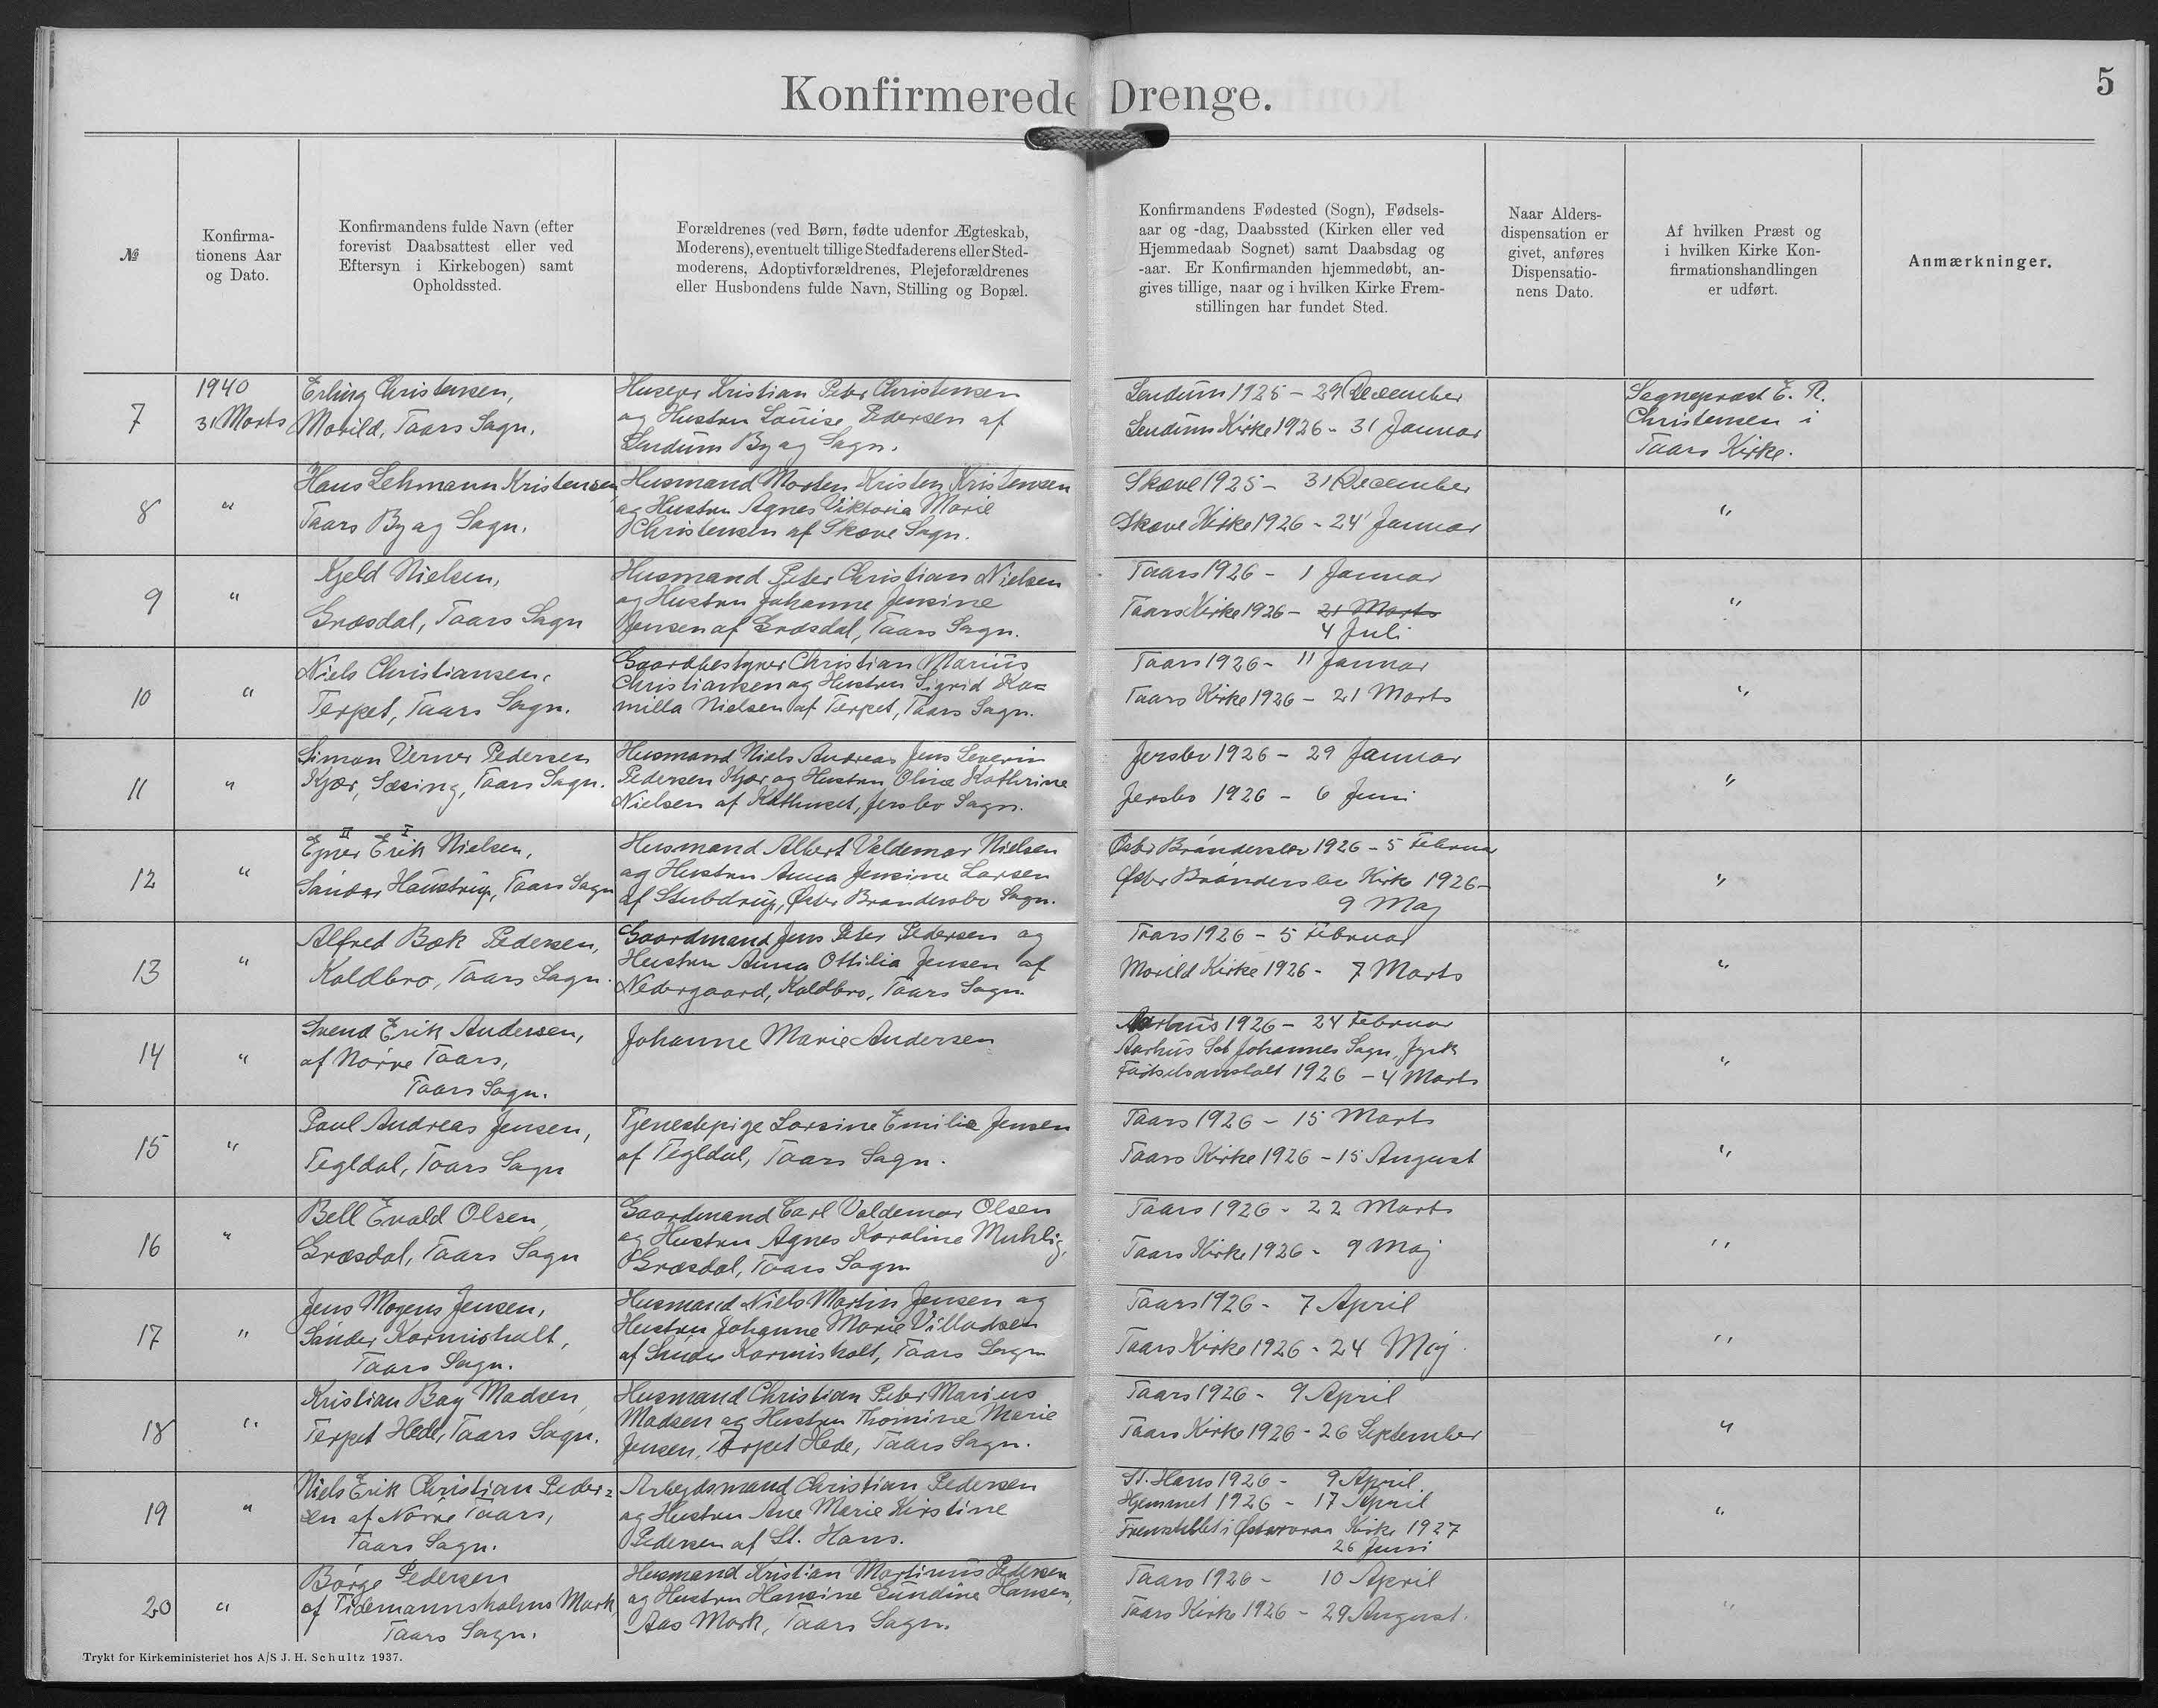 Konfirmerede Drenge.
5
№
Konfirma-
tionens Aar
og Dato.
Konfirmandens fulde Navn (efter
forevist Daabsattest eller ved
Eftersyn i Kirkebogen) samt
Opholdssted.
Forældrenes (ved Børn, fødte udenfor Ægteskab,
Moderens), eventuelt tillige Stedfaderens eller Sted-
moderens, Adoptivforældrenes, Plejeforældrenes
eller Husbondens fulde Navn, Stilling og Bopæl.
Konfirmandens Fødested (Sogn), Fødsels-
aar og -dag, Daabssted (Kirken eller ved
Hjemmedaab Sognet) samt Daabsdag og
-aar. Er Konfirmanden hjemmedøbt, an-
gives tillige, naar og i hvilken Kirke Frem-
stillingen har fundet Sted.
Naar Alders-
dispensation er
givet, anføres
Dispensatio-
nens Dato.
Af hvilken Præst og
i hvilken Kirke Kon-
firmationshandlingen
er udført.
Anmærkninger.
7
1940
31 Marts
Erling Christensen,
Morild, Taars Sogn.
Husejer Kristian Peter Christensen
og Hustru Louise Pedersen af
Lendum By og Sogn.
Lendum 1925 - 29 December
Lendum Kirke 1926 - 31 Januar
Sognepræst E. R.
Christensen i
Taars Kirke.
8
"
Hans Lehmann Kristensen
Taars By og Sogn.
Husmand Morten Kristen Kristensen
og Hustru Agnes Viktoria Marie
Christensen af Skæve Sogn.
Skæve 1925 - 31 December
Skæve Kirke 1926 - 24 Januar
"
9
"
Kjeld Nielsen,
Græsdal, Taars Sogn
Husmand Peter Christian Nielsen
og Hustru Johanne Jensine
Jensen af Græsdal, Taars Sogn.
Taars 1926 - 1 Januar
Taars Kirke 1926 - 21 Marts
4 Juli
"
10
"
Niels Christiansen,
Terpet, Taars Sogn.
Gaardbestyrer Christian Marius
Christiansen og Hustru Sigrid Ka=
milla Nielsen af Terpet, Taars Sogn.
Taars 1926 - 11 Januar
Taars Kirke 1926 - 21 Marts
"
11
"
Simon Verner Pedersen
Kjær, Sæsing, Taars Sogn.
Husmand Niels Andreas Jens Severin
Pedersen Kjær og Hustru Oline Kathrine
Nielsen af Kathuset, Jerslev Sogn.
Jerslev 1926 - 29 Januar
Jerslev 1926 - 6 Juni
"
12
"
II I
Ejner Erik Nielsen,
Sønder Haustrup, Taars Sogn
Husmand Albert Valdemar Nielsen
og Hustru Anna Jensine Larsen
af Stubdrup, Øster Brønderslev Sogn.
Øster Brønderslev 1926 - 5 Februar
Øster Brønderslev Kirke 1926 -
9 Maj
"
13
"
Alfred Bæk Pedersen,
Koldbro, Taars Sogn.
Gaardmand Jens Peter Pedersen og
Hustru Anna Ottilia Jensen af
Nedergaard, Koldbro, Taars Sogn.
Taars 1926 - 5 Februar
Morild Kirke 1926 - 7 Marts
"
14
"
Svend Erik Andersen,
af Nørre Taars,
Taars Sogn.
Johanne Marie Andersen
Aarhus 1926 - 24 Februar
Aarhus Sct Johannes Sogn, Jysk
Fødselsanstalt 1926 - 4 Marts
"
15
"
Poul Andreas Jensen,
Tegldal, Taars Sogn
Tjenestepige Larsine Emilie Jensen
af Tegldal, Taars Sogn.
Taars 1926 - 15 Marts
Taars Kirke 1926 - 15 August
"
16
"
Bell Evald Olsen,
Græsdal, Taars Sogn
Gaardmand Carl Valdemar Olsen
og Hustru Agnes Karoline Muhlig,
Græsdal, Taars Sogn
Taars 1926 - 22 Marts
Taars Kirke 1926 - 9 Maj
"
17
"
Jens Mogens Jensen,
Sønder Kormisholt,
Taars Sogn.
Husmand Niels Martin Jensen og
Hustru Johanne Marie Villadsen
af Sønder Kormisholt, Taars Sogn
Taars 1926 - 7 April
Taars Kirke 1926 - 24 Maj
"
18
"
Kristian Bay Madsen,
Terpet Hede, Taars Sogn.
Husmand Christian Peter Marius
Madsen og Hustru Thomine Marie
Jensen, Terpet Hede, Taars Sogn.
Taars 1926 - 9 April
Taars Kirke 1926 - 26 September
"
19
"
Niels Erik Christian Peder=
sen af Nørre Taars,
Taars Sogn.
Arbejdsmand Christian Pedersen
og Hustru Ane Marie Kirstine
Pedersen af St. Hans.
St. Hans 1926 - 9 April
Hjemmet 1926 - 17 April
Fremstillet i Østervraa Kirke 1927
26 Juni
"
20
"
Børge Pedersen
af Tidemannsholms Mark,
Taars Sogn.
Husmand Kristian Martinus Pedersen
og Hustru Hansine Gundine Hansen,
Aas Mark, Taars Sogn.
Taars 1926 - 10 April
Taars Kirke 1926 - 29 August.
"
Trykt for Kirkeministeriet hos A/S J. H. Schultz 1937.